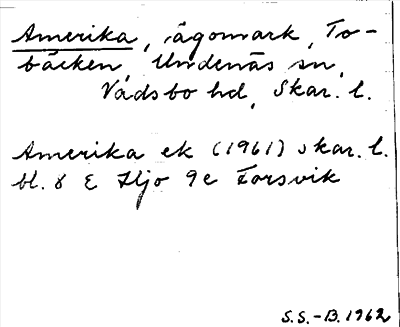 Amerika, ägomark, To-
bäcken, Undenäs sn,
Vadsbo hd, Skar. l.
Amerika ek (1961) skar. l.
bl. 8 E Hjo 9e Forsvik
S.S.-B. 1962